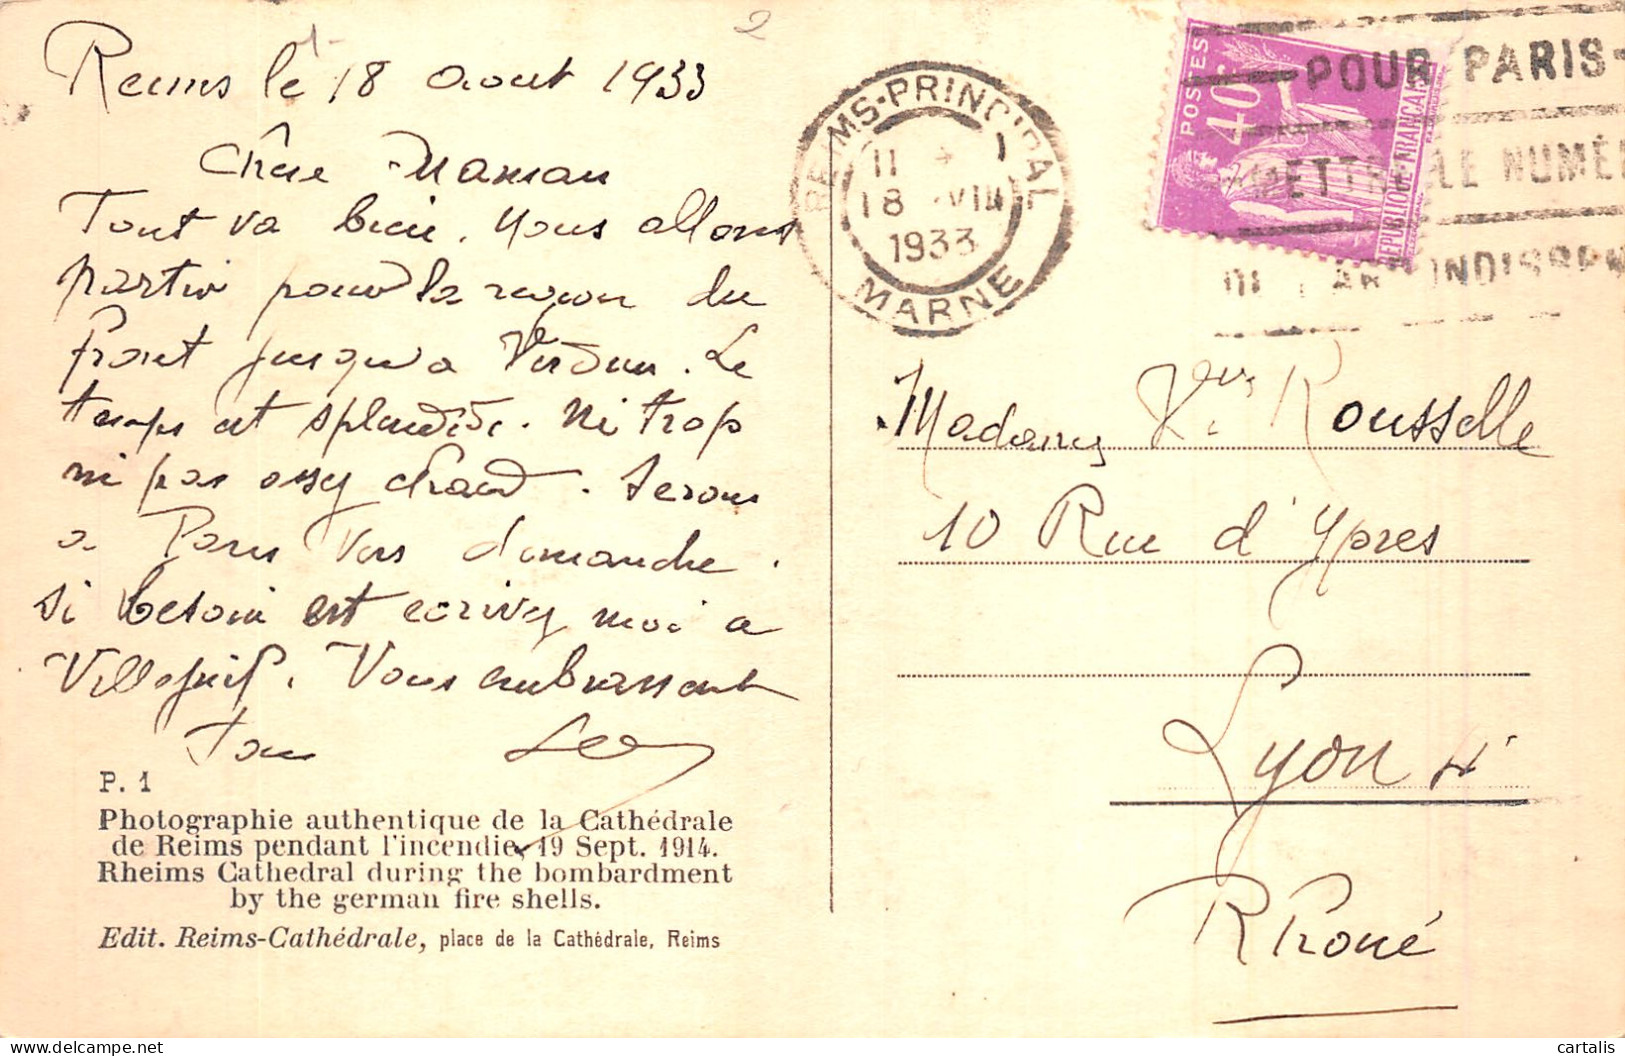 2
Reims le 18 aout 1933
Chère Maman
Tout va bien. Nous allons
partir pour la region du
front jusqu'a Verdun. Le
temps est splendide. Ni trop
ni pas assez chaud. Serons
a Paris vers dimanche.
Si besoin est ecrivez moi a
Villejuif. Vous embrassent
Leo
P. 1
Photographie authentique de la Cathédrale
de Reims pendant l'incendie, 19 Sept. 1914.
Rheims Cathedral during the bombardment
by the german fire shells.
Edit. Reims-Cathédrale, place de la Cathédrale, Reims
REIMS-PRINCIPAL
11
18 VIII
1933
MARNE
POSTES
40c
REPUBLIQUE-FRANÇAISE
POUR PARIS-
METTRE LE NUMÉ
Madame Vve Rousselle
10 Rue d'Ypres
Lyon
Rhone
cartalis